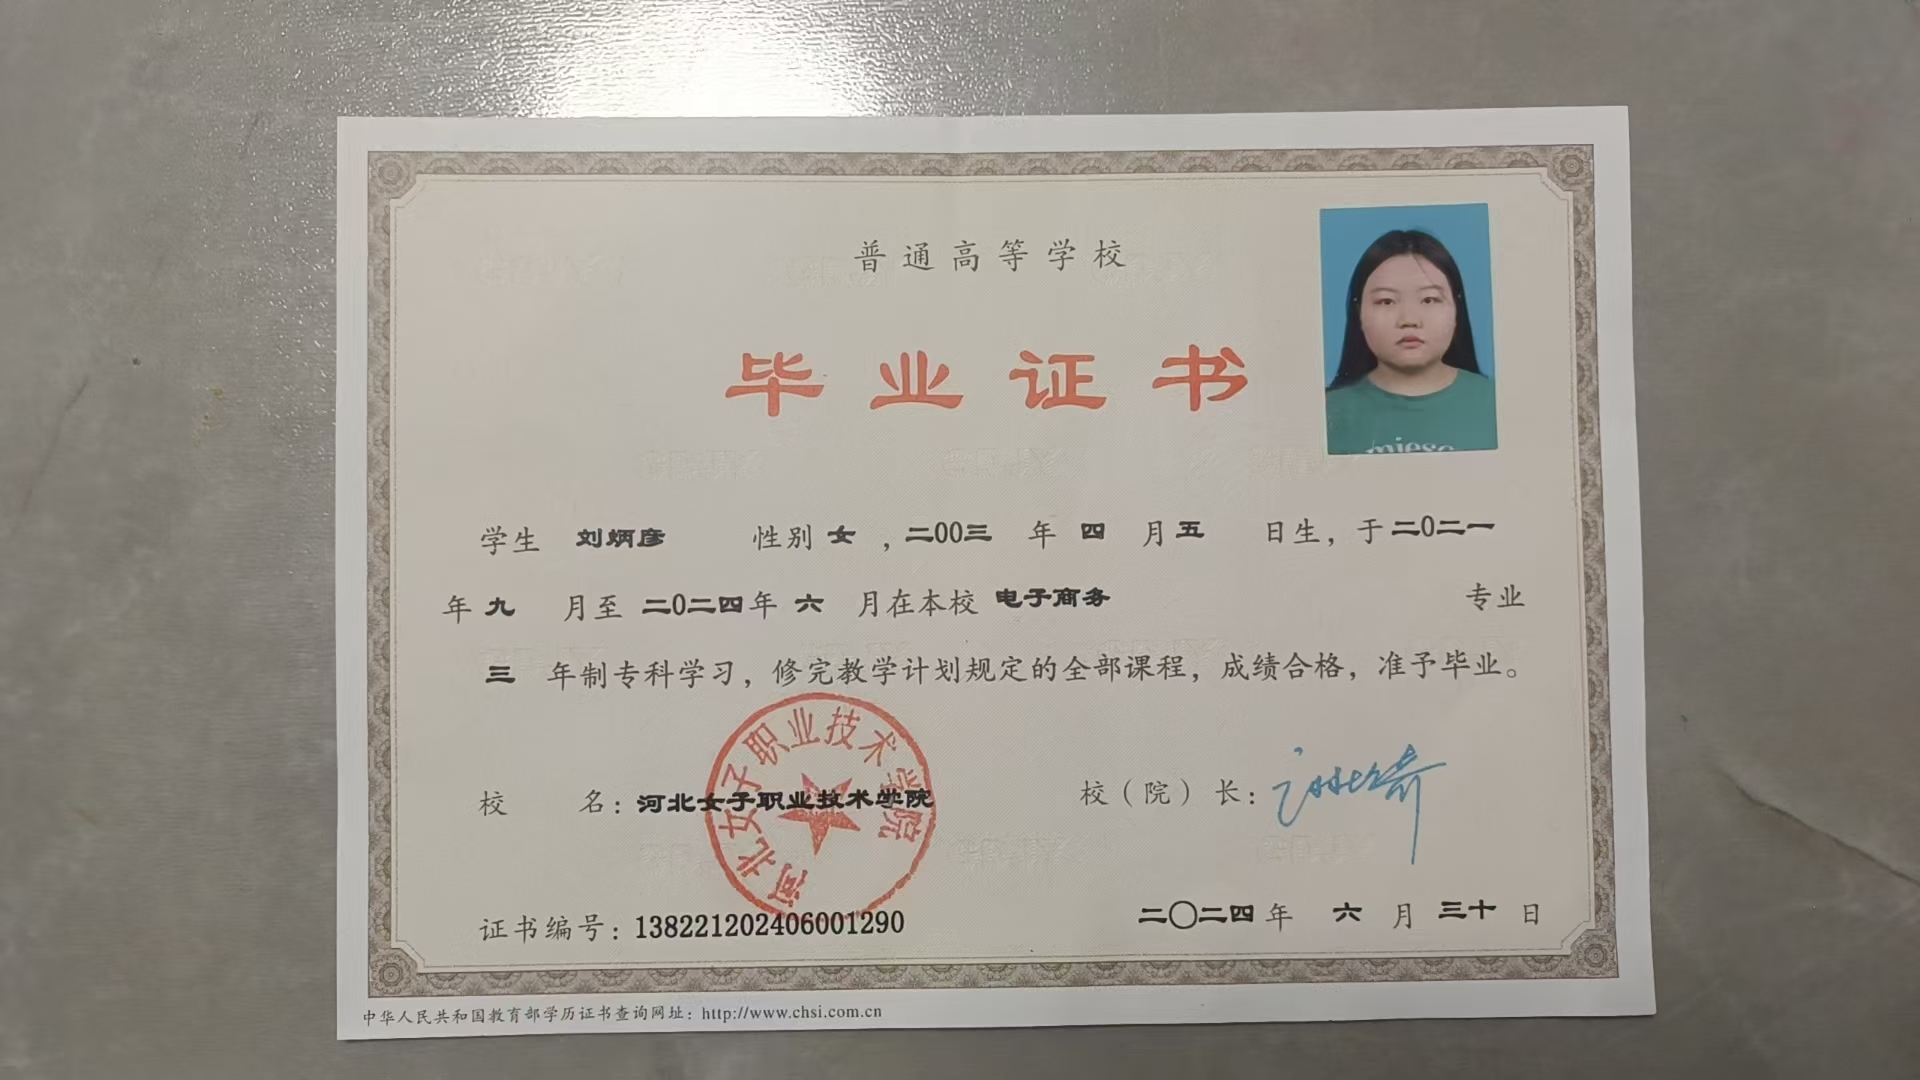 普通高等学校
毕业证书
学生 刘炳彦 性别 女 ，二00三 年 四 月 五 日生，于 二0二一
年 九 月至 二0二四 年 六 月在本校 电子商务 专业
三 年制专科学习，修完教学计划规定的全部课程，成绩合格，准予毕业。
河北女子职业技术学院
校 名：河北女子职业技术学院 校（院）长：
证书编号：138221202406001290 二〇二四 年 六 月 三十 日
中华人民共和国教育部学历证书查询网址：http://www.chsi.com.cn